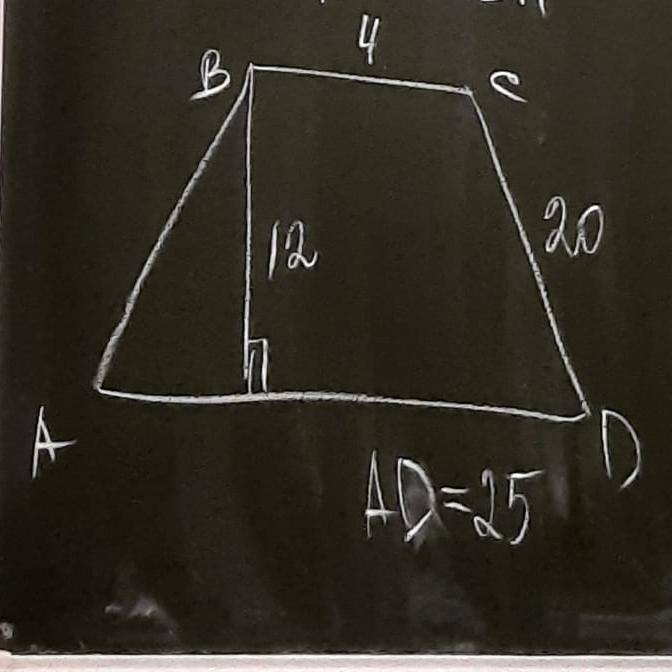 4
B
C
12
20
A
D
AD=25